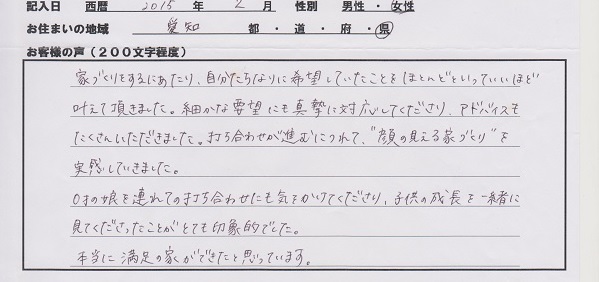 記入日 西暦 2015 年 2 月 性別 男性・女性
お住まいの地域 愛知 都・道・府・県
お客様の声（200文字程度）
家づくりをするにあたり、自分たちなりに希望していたことをほとんどといっていいほど
叶えて頂きました。細かな要望にも真摯に対応してくださり、アドバイスも
たくさんいただきました。打ち合わせが進むにつれて、"顔の見える家づくり"を
実感していきました。
0才の娘を連れての打ち合わせにも気をかけてくださり、子供の成長を一緒に
見てくださったことがとても印象的でした。
本当に満足の家ができたと思っています。